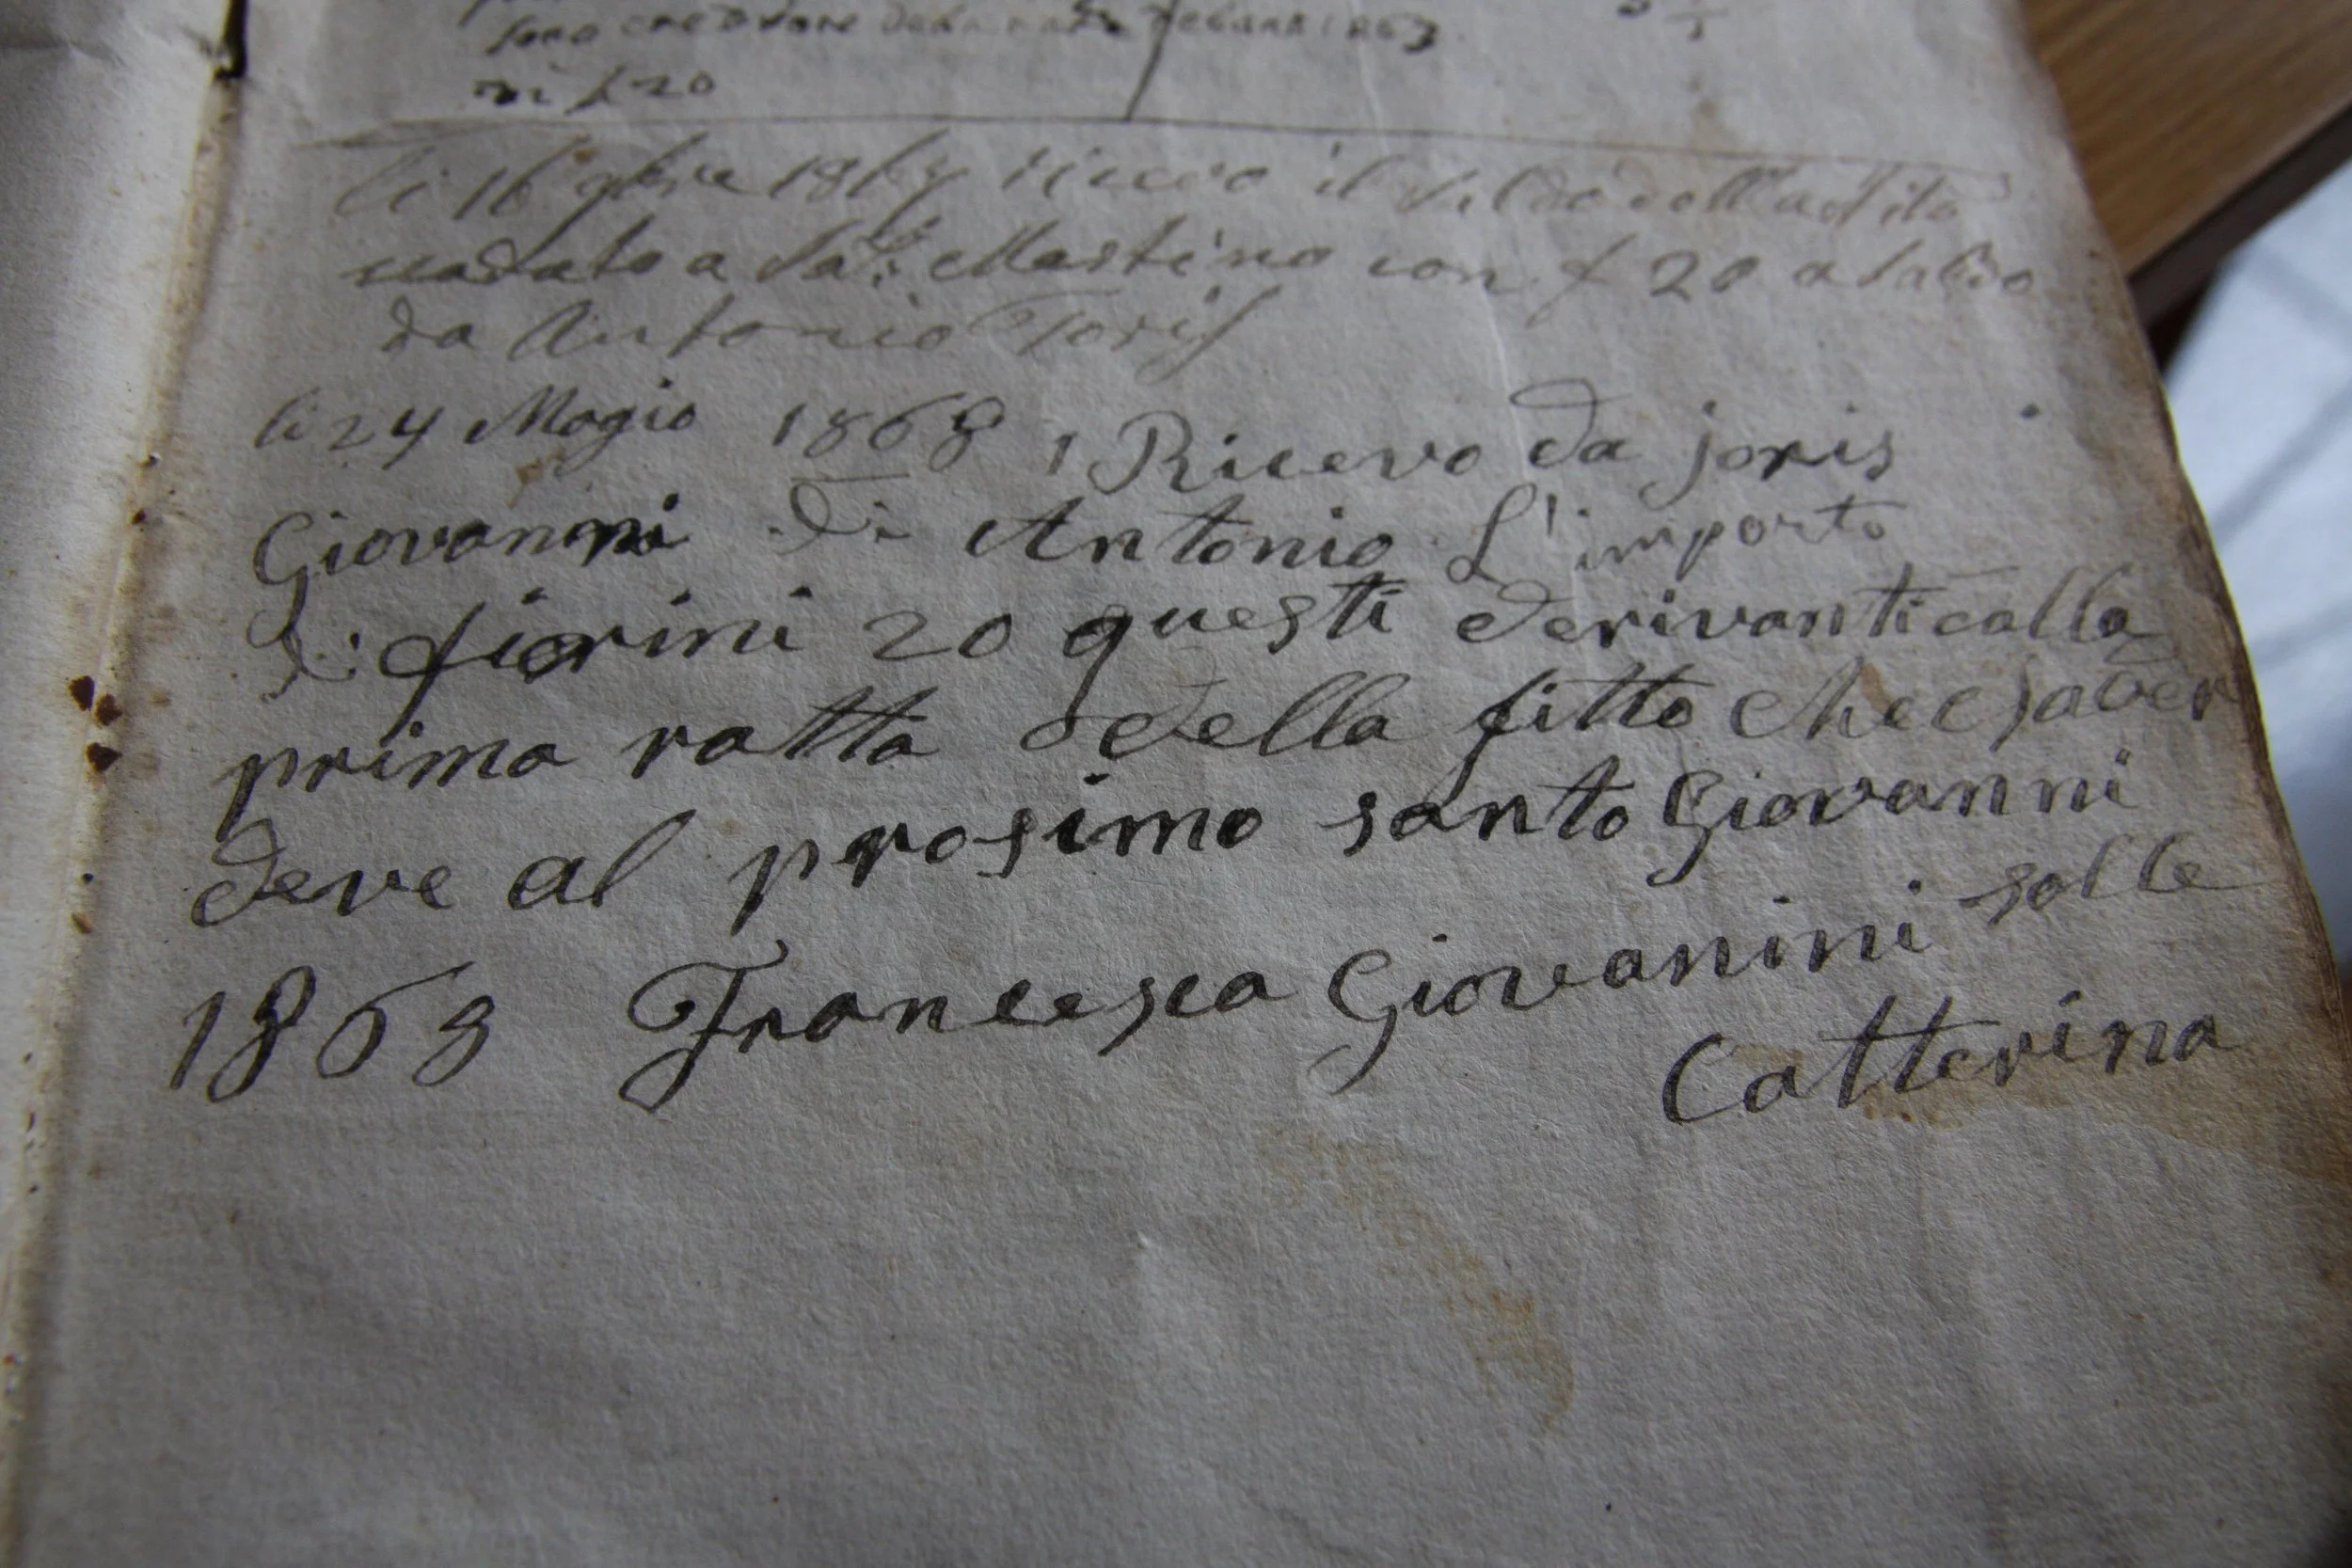 sono creditore della
di f 20
li 16 9bre 1867 ricevo il saldo dell affito
scadato a Sa: Martino con f 20 a saldo
da Antonio Joris
li 24 Magio 1868 Ricevo da joris
Giovanni di Antonio L'importo
di fiorini 20 questi derivanti colla
prima ratta della fitto che
deve al prosimo santo Giovanni
1868 Francesca Giovanini
Catterina